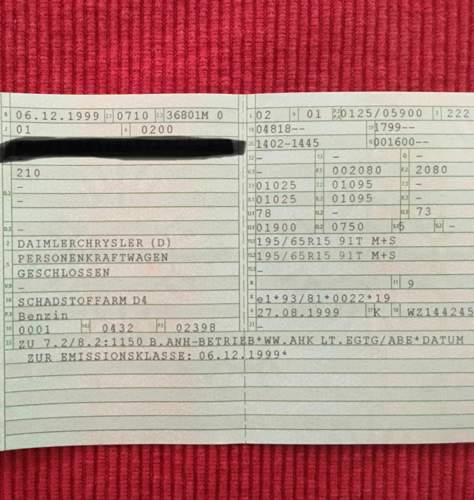 06.12.1999 0710 36801M 0
01 0200
210
-
-
DAIMLERCHRYSLER (D)
PERSONENKRAFTWAGEN
GESCHLOSSEN
-
SCHADSTOFFARM D4
Benzin
0001 0432 02398
ZU 7.2/8.2:1150 B.ANH-BETRIEB*WW.AHK LT.EGTG/ABE*DATUM
ZUR EMISSIONSKLASSE: 06.12.1999*
02 01 0125/05900 222
04818-- 1799--
1402-1445 001600--
- - -
- 002080 2080
01025 01095 -
01025 01095 -
78 - 73
01900 0750 5 -
195/65R15 91T M+S
195/65R15 91T M+S
-
- 9
e1*93/81*0022*19
27.08.1999 K WZ144245
-